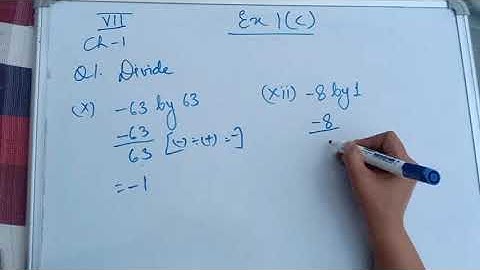 VII
Ch-1
Ex 1(c)
Q1. Divide
(x) -63 by 63
-63
63 [(-) ÷ (+) = -]
= -1
(xii) -8 by 1
-8